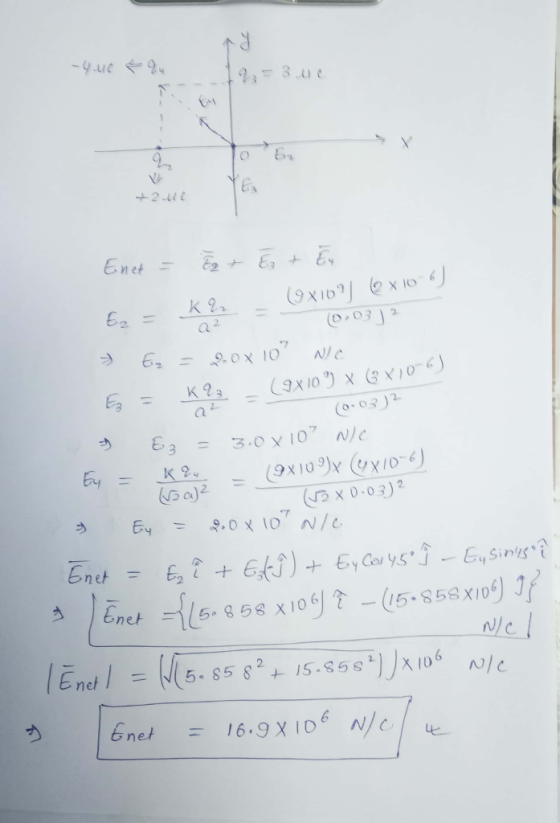 y
-4μc ⇐ q₄
q₃ = 3μc
E₄
X
q₂
O
E₂
⇓
E₃
+2μc
Enet = E̅₂ + E̅₃ + E̅₄
E₂ = Kq₂/a² = (9×10⁹) (2×10⁻⁶)/(0.03)²
⇒ E₂ = 2.0×10⁷ N/C
E₃ = Kq₃/a² = (9×10⁹) × (3×10⁻⁶)/(0.03)²
⇒ E₃ = 3.0×10⁷ N/C
E₄ = Kq₄/(√2a)² = (9×10⁹)×(4×10⁻⁶)/(√2×0.03)²
⇒ E₄ = 2.0×10⁷ N/C
E̅net = E₂ î + E₃(-ĵ) + E₄Cos45° ĵ - E₄Sin45° î
⇒ E̅net = {(5.858×10⁶) î - (15.858×10⁶) ĵ}
N/C
|E̅net| = (√(5.858² + 15.858²))×10⁶ N/C
⇒ Enet = 16.9×10⁶ N/C